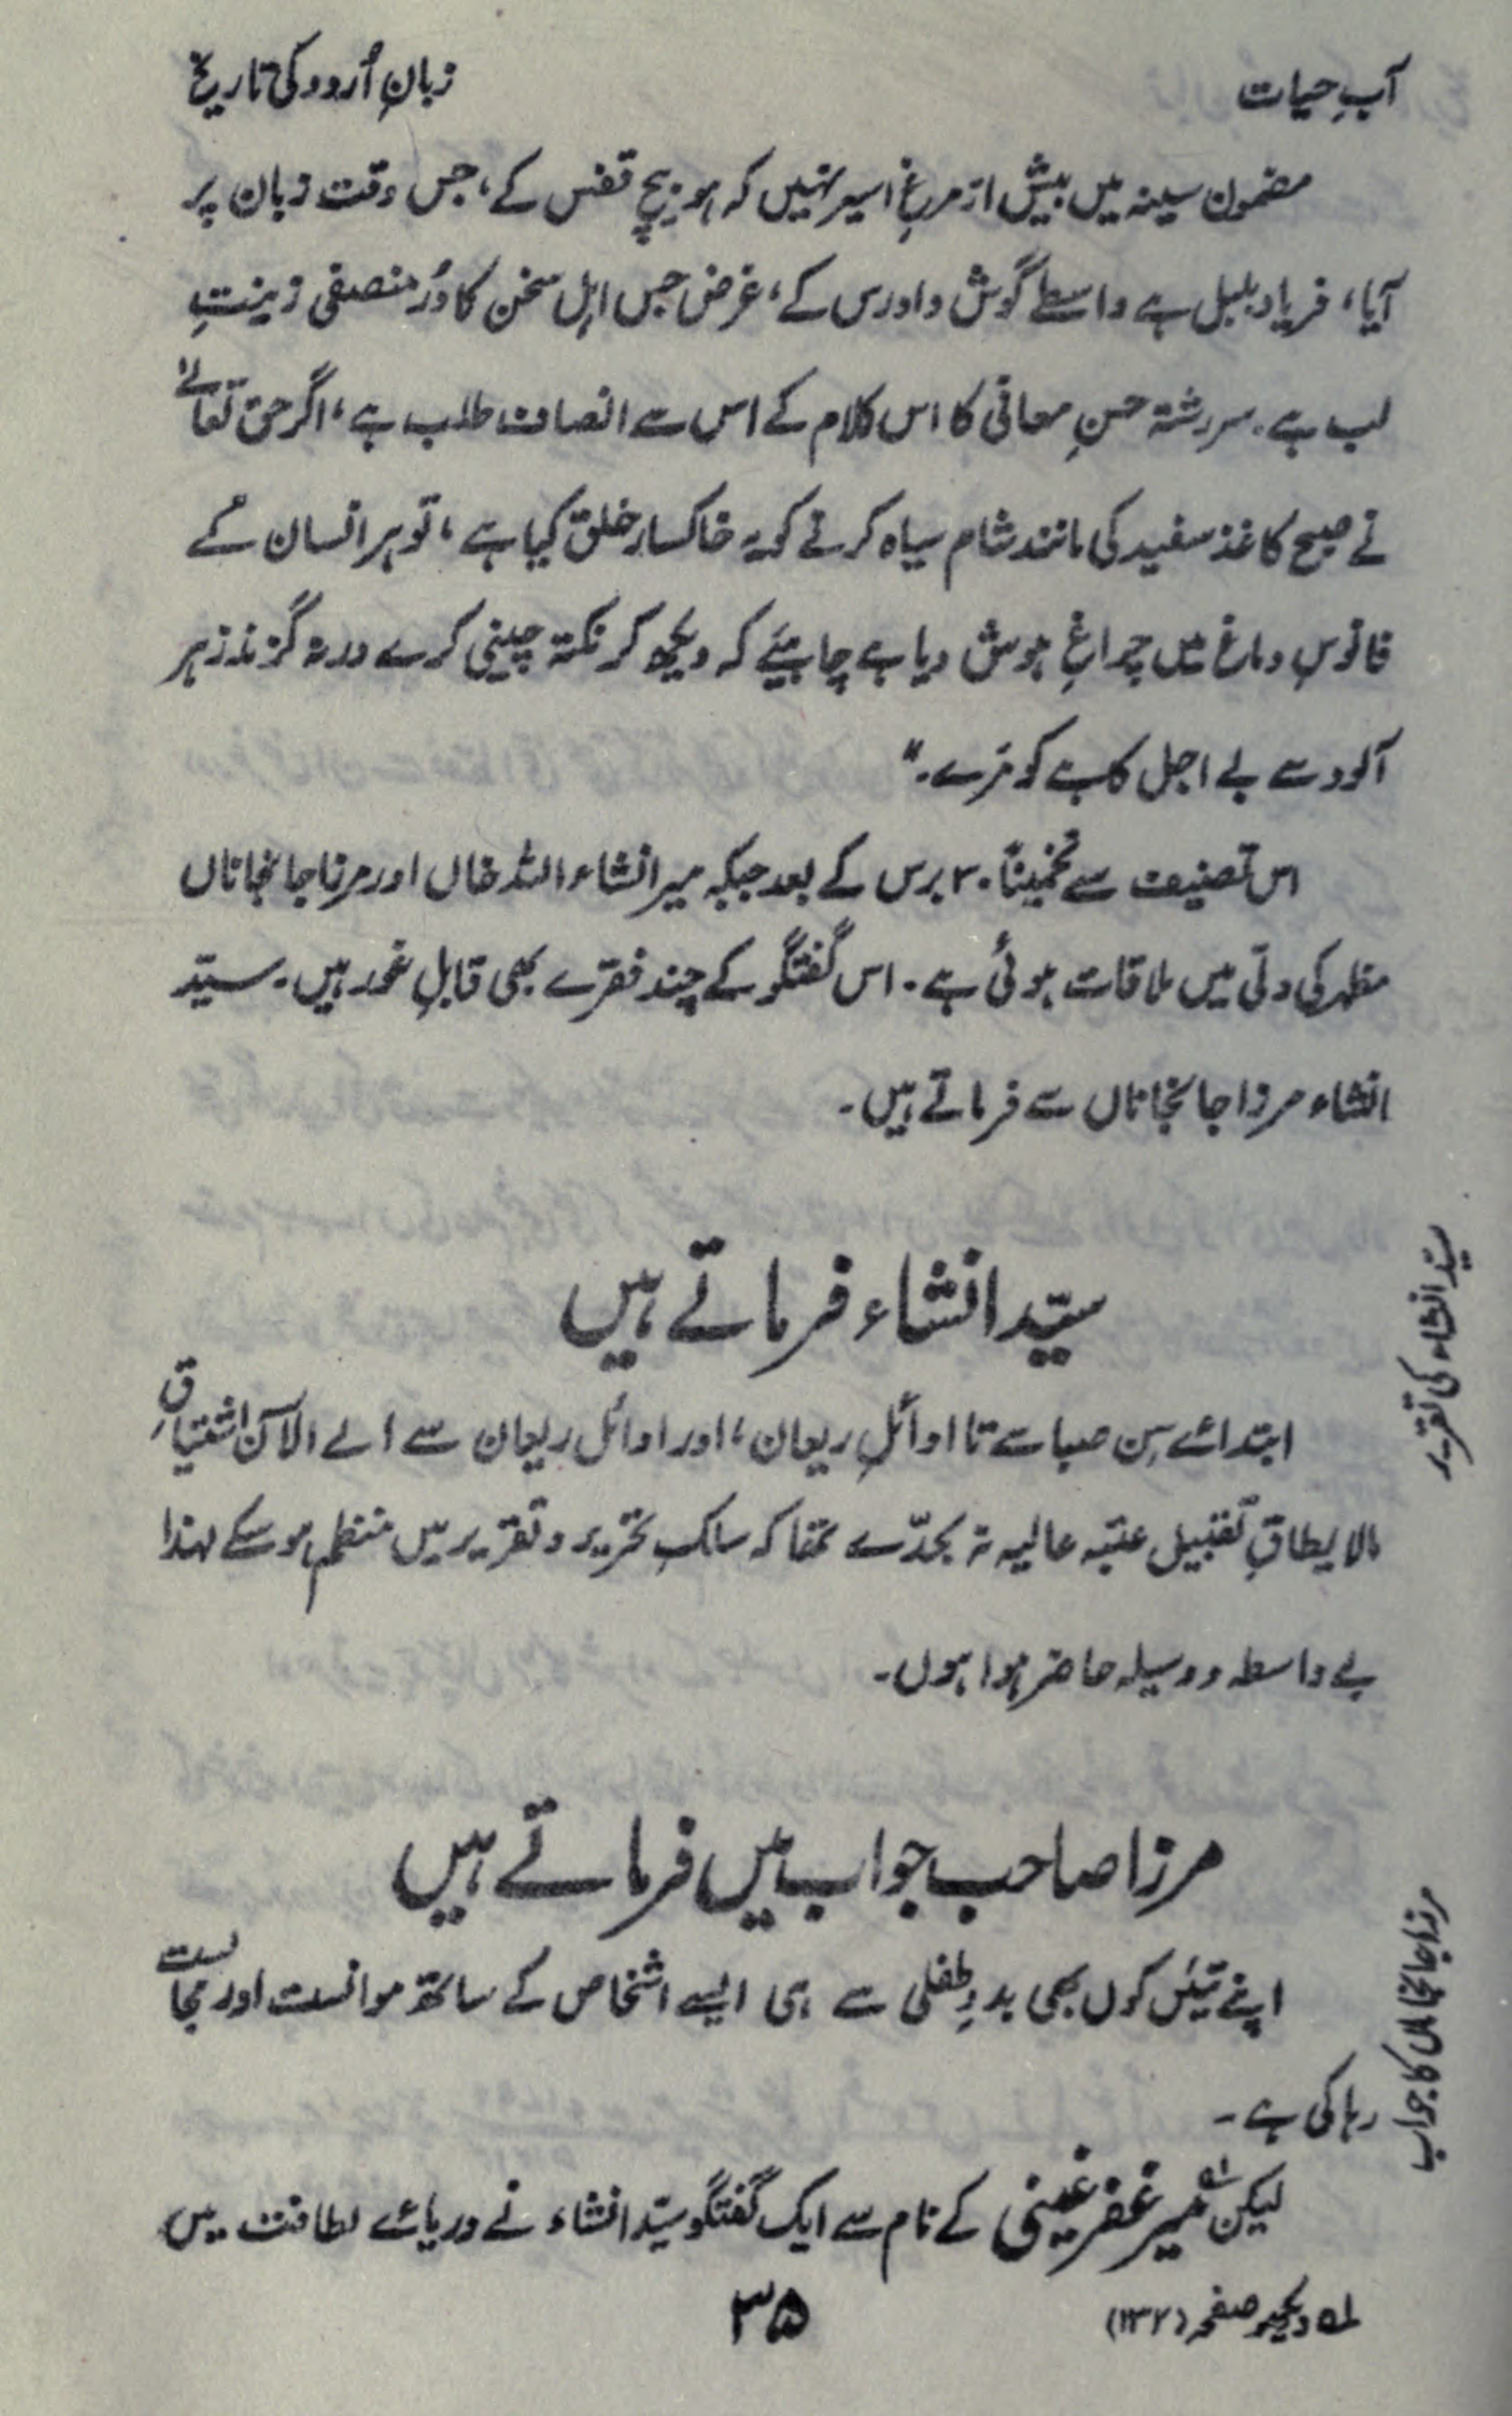 آبِ حیات
زبانِ اُردو کی تاریخ
مضمون سینہ میں بیش از مرغِ اسیر نہیں کہ ہو بیچ قفس کے، جس وقت زبان پر
آیا، فریاد بلبل ہے واسطے گوش دادرس کے، غرض جس اہلِ سخن کا دُرِ منصفی زینتِ
لب ہے۔ سررشتہ حسنِ معانی کا اس کلام کے اس سے انصاف طلب ہے، اگر حق تعالےٰ
نے صبح کاغذ سفید کی مانند شام سیاہ کرنے کو یہ خاکسار خلق کیا ہے، تو ہر انسان کے
فانوسِ دماغ میں چراغِ ہوش دیا ہے چاہیئے کہ دیکھ کر نکتہ چینی کرے ورنہ گزند زہر
آلود سے بے اجل کاہے کو مرے۔"
اس تصنیف سے تخمیناً ۳۰ برس کے بعد جبکہ میر انشاء اللہ خاں اور مرزا جانجاناں
مظہر کی دلّی میں ملاقات ہوئی ہے۔ اس گفتگو کے چند فقرے بھی قابلِ غور ہیں۔ سیّد
انشاء مرزا جانجاناں سے فرماتے ہیں۔
سیّد انشاء فرماتے ہیں
سیّد انشاء کی تقریر
ابتدائے سِن صبا سے تا اوائلِ ریعان، اور اوائل ریعان سے الے الآن اشتیاقِ
مالا یطاقِ تقبیل عتبہ عالیہ نہ بحدّے تھا کہ سلکِ تحریر و تقریر میں منتظم ہو سکے لہذا
بے واسطہ و وسیلہ حاضر ہوا ہوں۔
مرزا صاحب جواب میں فرماتے ہیں
مرزا جانجاناں کا جواب
اپنے تیئں کوں بھی بدوِ طفلی سے ہی ایسے اشخاص کے ساتھ موانست اور مجالست
رہا کی ہے۔
لیکن میر غفر غینی ؎۱ کے نام سے ایک گفتگو سیّد انشاء نے دریائے لطافت میں
؎۱ دیکھیو صفحہ (۱۳۲)
۳۵